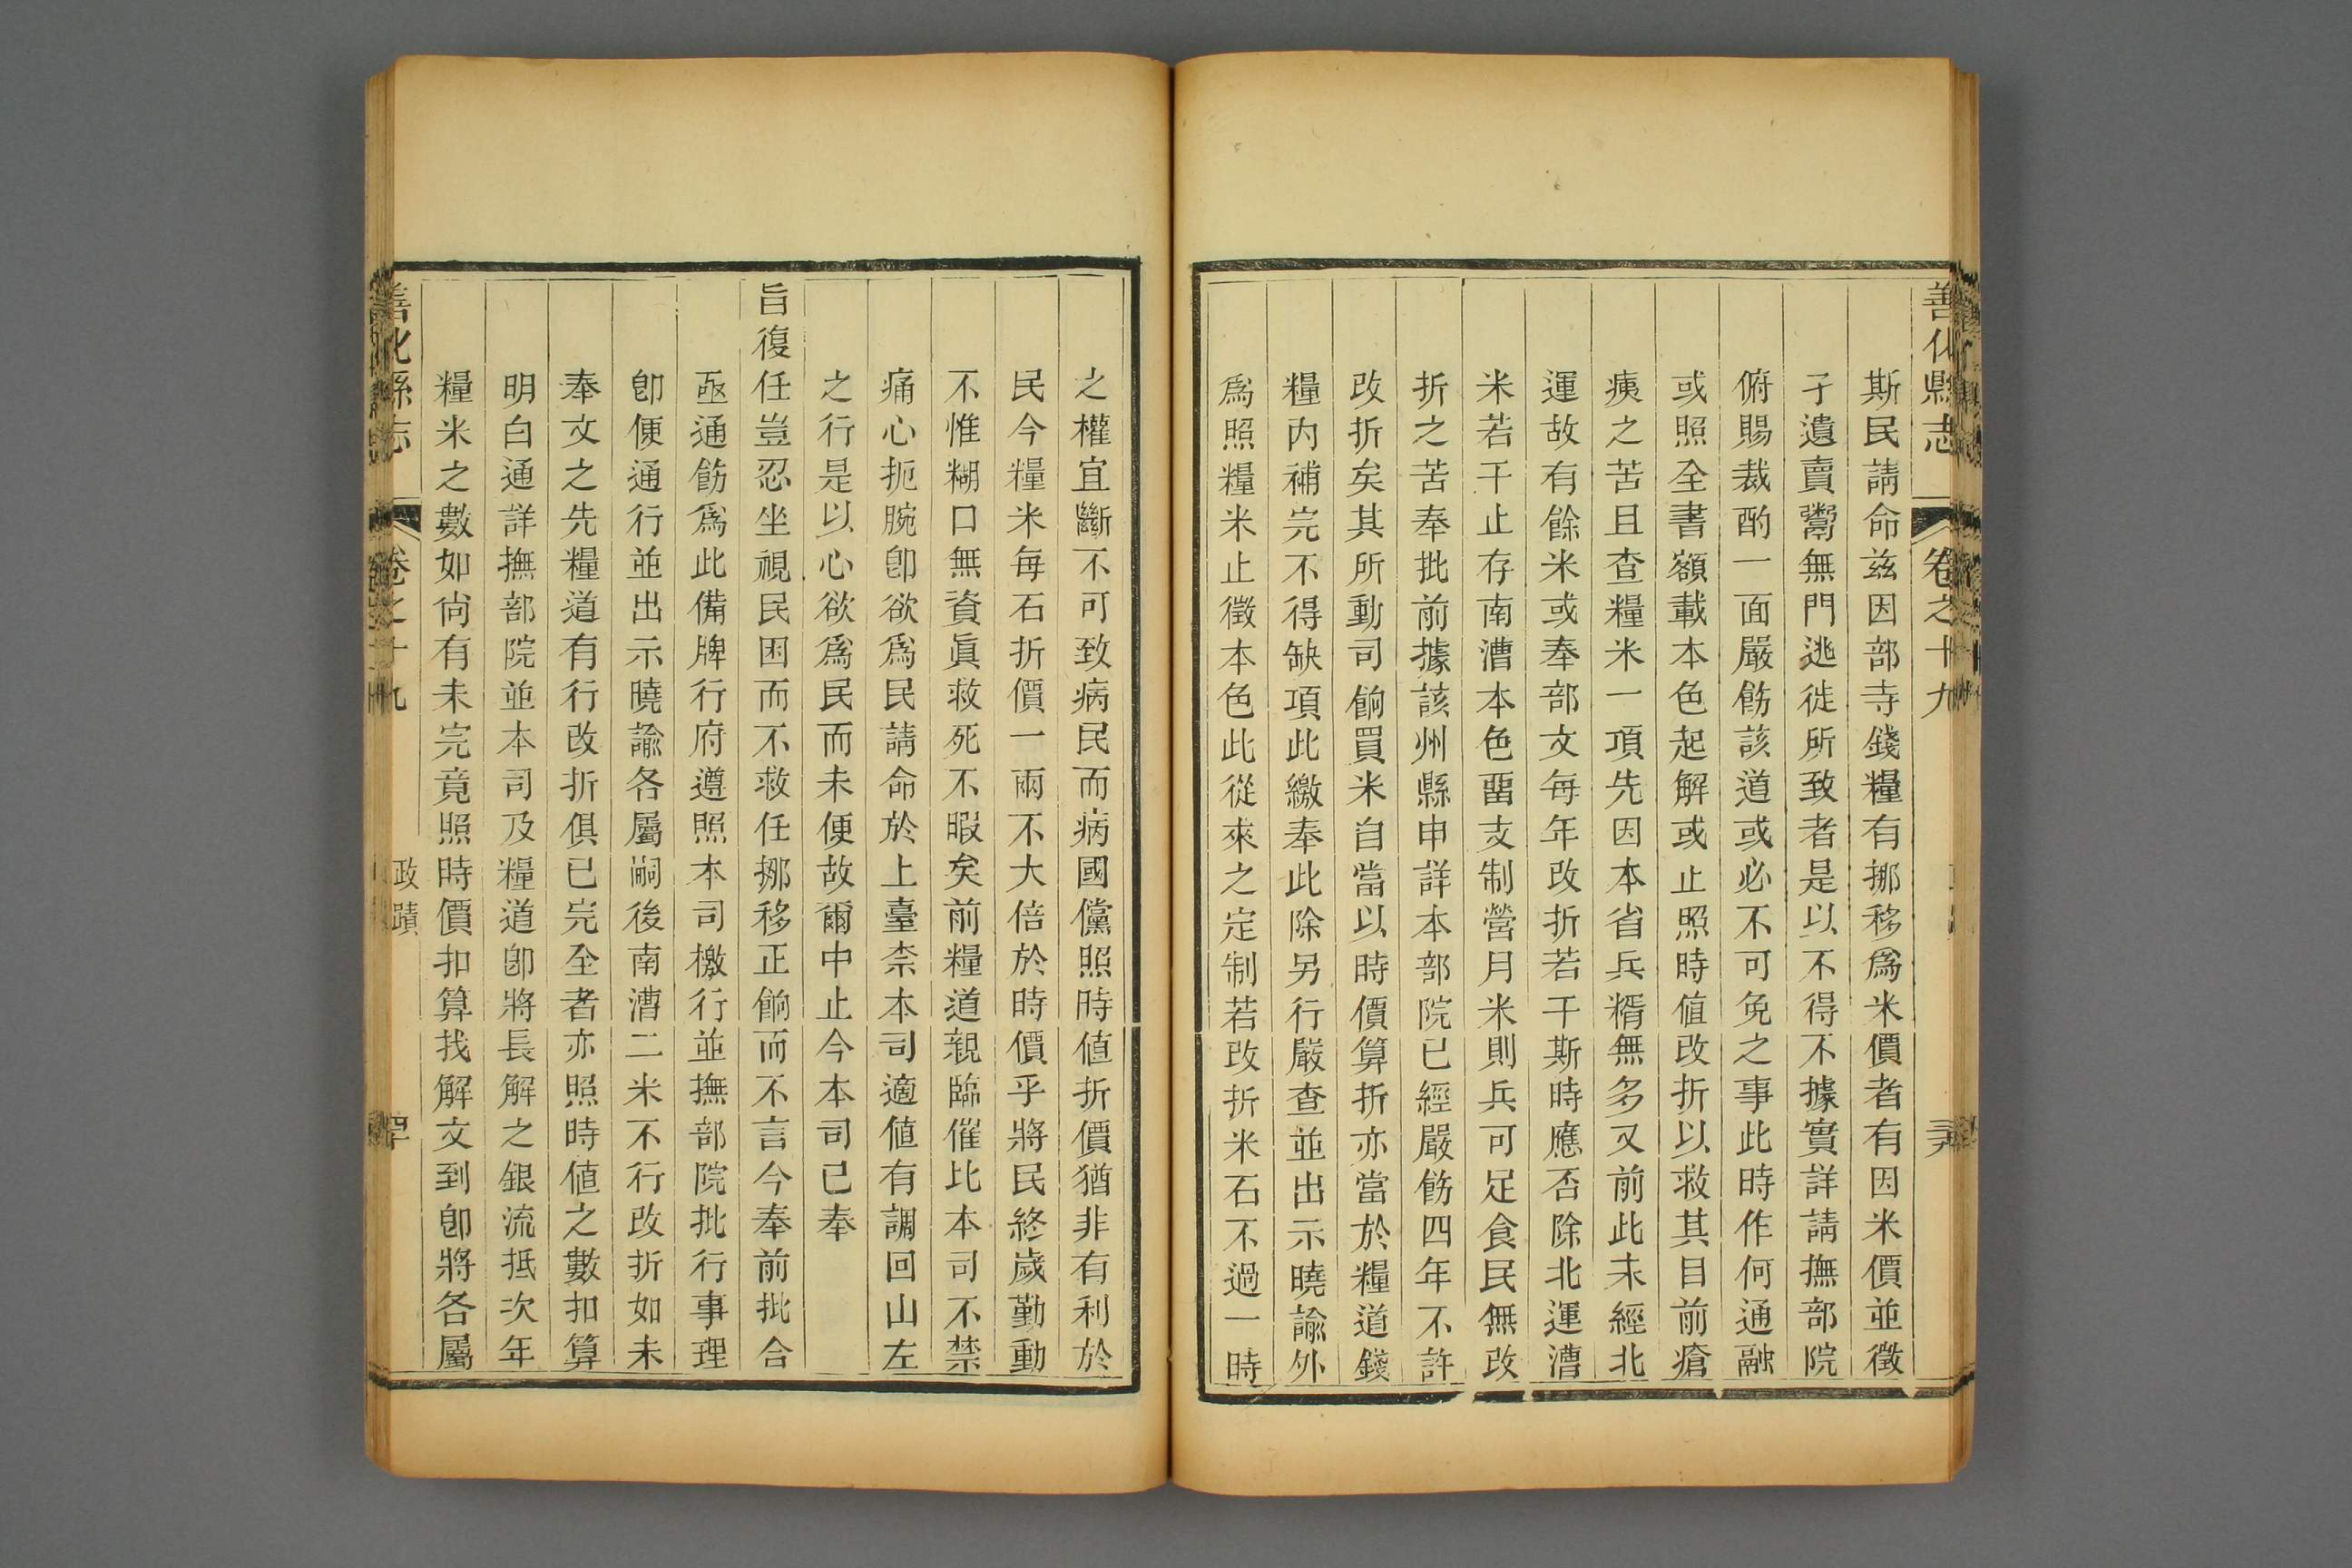 善化縣志 卷之十九
斯民請命茲因部寺錢糧有挪移爲米價者有因米價並徵
孑遺賣鬻無門逃徙所致者是以不得不據實詳請撫部院
俯賜裁酌一面嚴飭該道或必不可免之事此時作何通融
或照全書額載本色起解或止照時值改折以救其目前瘡
痍之苦且查糧米一項先因本省兵糈無多又前此未經北
運故有餘米或奉部文每年改折若干斯時應否除北運漕
米若干止存南漕本色畱支制營月米則兵可足食民無改
折之苦奉批前據該州縣申詳本部院已經嚴飭四年不許
改折矣其所動司餉買米自當以時價算折亦當於糧道錢
糧內補完不得缺項此繳奉此除另行嚴查並出示曉諭外
爲照糧米止徵本色此從來之定制若改折米石不過一時
之權宜斷不可致病民而病國儻照時值折價猶非有利於
民今糧米每石折價一兩不大倍於時價乎將民終歲勤動
不惟糊口無資眞救死不暇矣前糧道親臨催比本司不禁
痛心扼腕卽欲爲民請命於上臺柰本司適值有調回山左
之行是以心欲爲民而未便故爾中止今本司已奉
旨復任豈忍坐視民困而不救任挪移正餉而不言今奉前批合
亟通飭爲此備牌行府遵照本司檄行並撫部院批行事理
卽便通行並出示曉諭各屬嗣後南漕二米不行改折如未
奉文之先糧道有行改折俱已完全者亦照時值之數扣算
明白通詳撫部院並本司及糧道卽將長解之銀流抵次年
糧米之數如尙有未完竟照時價扣算找解文到卽將各屬
善化縣志 卷之十九 政蹟